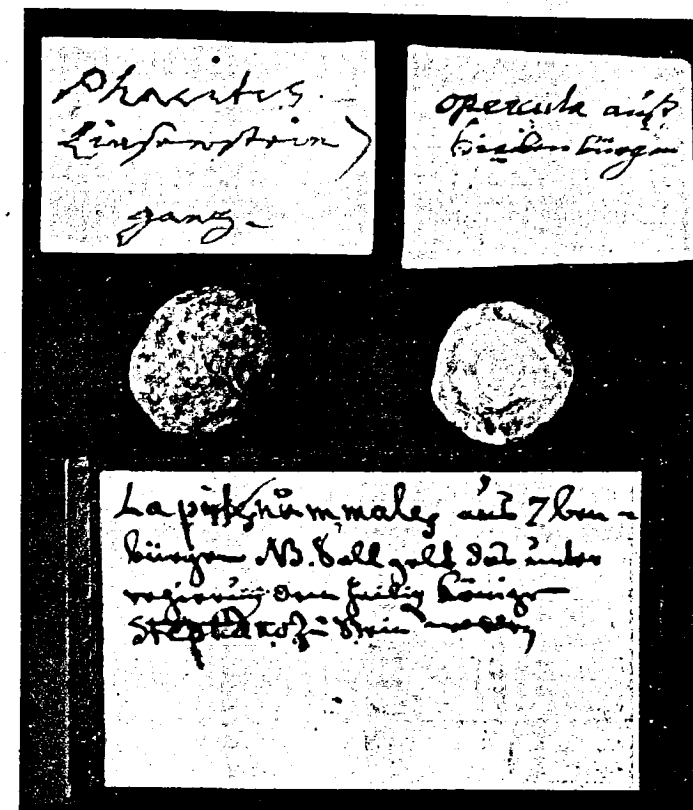 Phacites.
Linsenstein)
ganz.
opercula auß
Siebenbürgen
Lapis nummales auß 7ben-
bürgen NB. Soll geld das unter
regierung dem heilig König
Stephano zu Stein worden